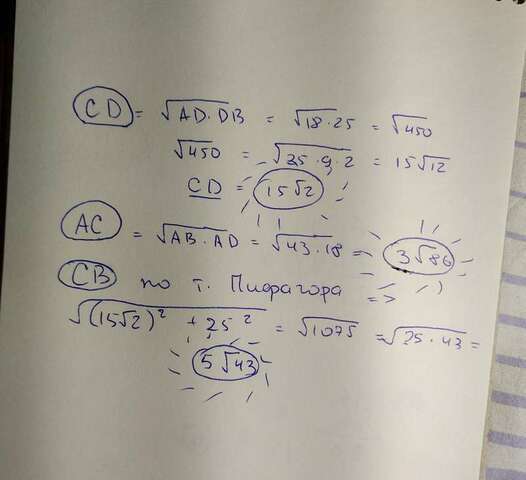 CD = √AD·DB = √18·25 = √450
√450 = √25·9·2 = 15√12
CD = 15√2
AC = √AB·AD = √43·18 = 3√86
CB по т. Пифагора =>
√(15√2)² + 25² = √1075 = √25·43 =
5√43